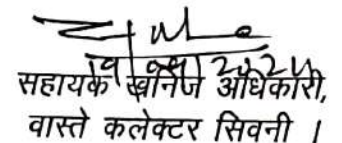 सहायक खनिज अधिकारी,
वास्ते कलेक्टर सिवनी ।